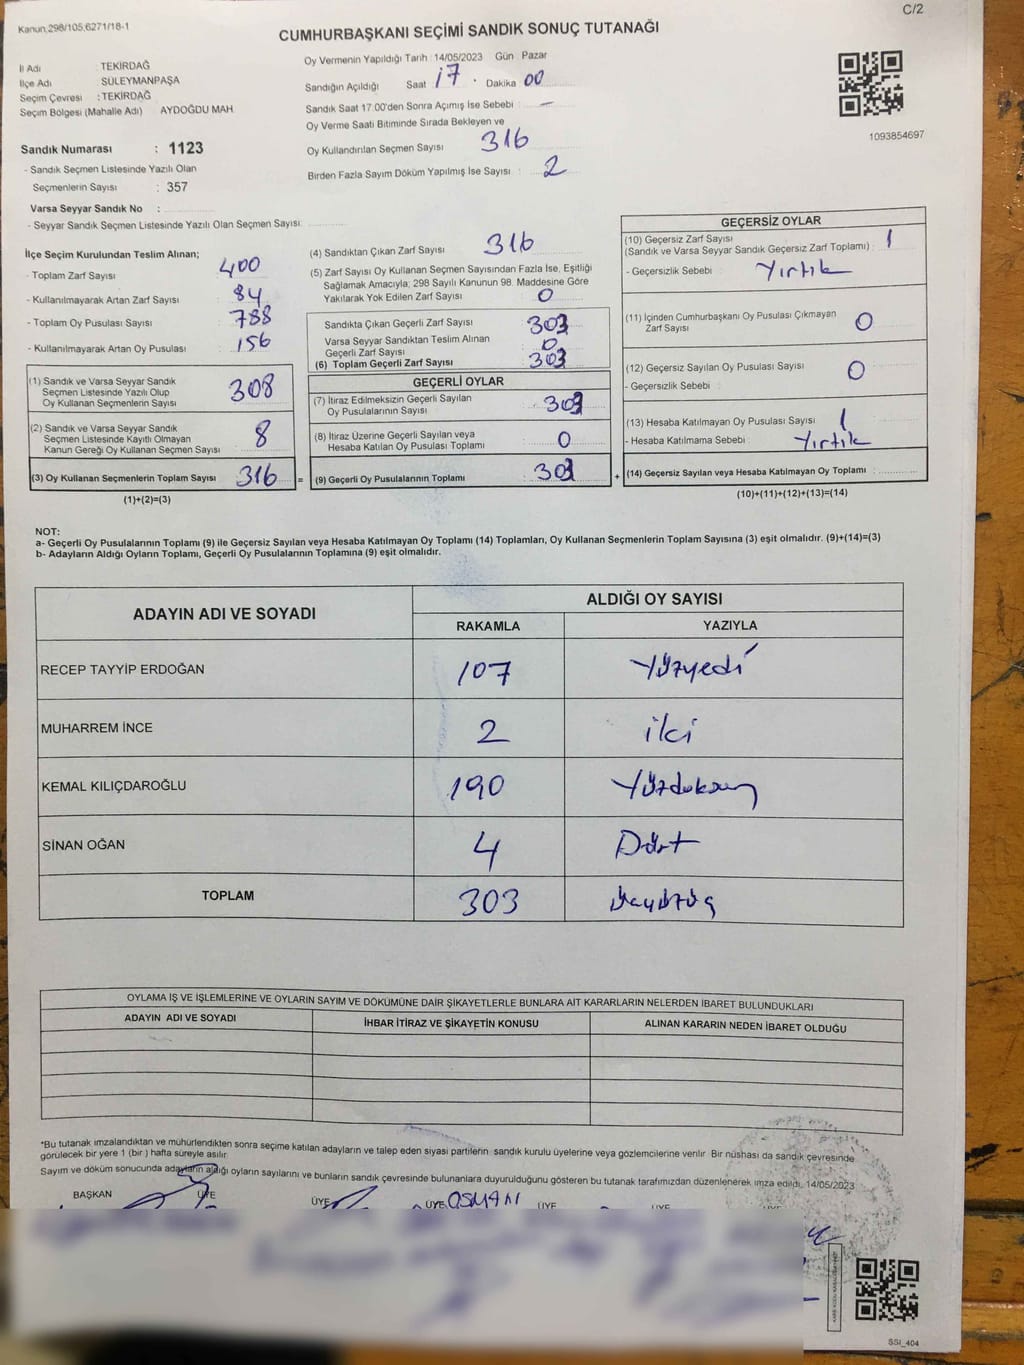 Kanun,298/105,6271/18-1
C/2
CUMHURBAŞKANI SEÇİMİ SANDIK SONUÇ TUTANAĞI
İl Adı : TEKİRDAĞ
İlçe Adı : SÜLEYMANPAŞA
Seçim Çevresi : TEKİRDAĞ
Seçim Bölgesi (Mahalle Adı) AYDOĞDU MAH.
Sandık Numarası : 1123
- Sandık Seçmen Listesinde Yazılı Olan
Seçmenlerin Sayısı : 357
Varsa Seyyar Sandık No :
- Seyyar Sandık Seçmen Listesinde Yazılı Olan Seçmen Sayısı:
Oy Vermenin Yapıldığı Tarih : 14/05/2023 Gün Pazar
Sandığın Açıldığı Saat 17 Dakika 00
Sandık Saat 17:00'den Sonra Açımış İse Sebebi : —
Oy Verme Saati Bitiminde Sırada Bekleyen ve
Oy Kullandırılan Seçmen Sayısı 316
Birden Fazla Sayım Döküm Yapılmış İse Sayısı : 2
1093854697
İlçe Seçim Kurulundan Teslim Alınan;
- Toplam Zarf Sayısı 400
- Kullanılmayarak Artan Zarf Sayısı 84
- Toplam Oy Pusulası Sayısı 788
- Kullanılmayarak Artan Oy Pusulası 156
(1) Sandık ve Varsa Seyyar Sandık
Seçmen Listesinde Yazılı Olup
Oy Kullanan Seçmenlerin Sayısı 308
(2) Sandık ve Varsa Seyyar Sandık
Seçmen Listesinde Kayıtlı Olmayan
Kanun Gereği Oy Kullanan Seçmen Sayısı 8
(3) Oy Kullanan Seçmenlerin Toplam Sayısı 316 =
(1)+(2)=(3)
(4) Sandıktan Çıkan Zarf Sayısı 316
(5) Zarf Sayısı Oy Kullanan Seçmen Sayısından Fazla İse, Eşitliği
Sağlamak Amacıyla; 298 Sayılı Kanunun 98. Maddesine Göre
Yakılarak Yok Edilen Zarf Sayısı 0
Sandıkta Çıkan Geçerli Zarf Sayısı 303
Varsa Seyyar Sandıktan Teslim Alınan
Geçerli Zarf Sayısı 0
(6) Toplam Geçerli Zarf Sayısı 303
GEÇERLİ OYLAR
(7) İtiraz Edilmeksizin Geçerli Sayılan
Oy Pusulalarının Sayısı 303
(8) İtiraz Üzerine Geçerli Sayılan veya
Hesaba Katılan Oy Pusulası Toplamı 0
(9) Geçerli Oy Pusulalarının Toplamı 303 +
GEÇERSİZ OYLAR
(10) Geçersiz Zarf Sayısı
(Sandık ve Varsa Seyyar Sandık Geçersiz Zarf Toplamı) : 1
- Geçersizlik Sebebi : Yırtık
(11) İçinden Cumhurbaşkanı Oy Pusulası Çıkmayan
Zarf Sayısı 0
(12) Geçersiz Sayılan Oy Pusulası Sayısı 0
- Geçersizlik Sebebi :
(13) Hesaba Katılmayan Oy Pusulası Sayısı 1
- Hesaba Katılmama Sebebi : Yırtık
(14) Geçersiz Sayılan veya Hesaba Katılmayan Oy Toplamı :
(10)+(11)+(12)+(13)=(14)
NOT:
a- Geçerli Oy Pusulalarının Toplamı (9) ile Geçersiz Sayılan veya Hesaba Katılmayan Oy Toplamı (14) Toplamları, Oy Kullanan Seçmenlerin Toplam Sayısına (3) eşit olmalıdır. (9)+(14)=(3)
b- Adayların Aldığı Oyların Toplamı, Geçerli Oy Pusulalarının Toplamına (9) eşit olmalıdır.
ADAYIN ADI VE SOYADI ALDIĞI OY SAYISI
RAKAMLA YAZIYLA
RECEP TAYYİP ERDOĞAN 107 Yüzyedi
MUHARREM İNCE 2 iki
KEMAL KILIÇDAROĞLU 190 Yüzdoksan
SİNAN OĞAN 4 Dört
TOPLAM 303
OYLAMA İŞ VE İŞLEMLERİNE VE OYLARIN SAYIM VE DÖKÜMÜNE DAİR ŞİKAYETLERLE BUNLARA AİT KARARLARIN NELERDEN İBARET BULUNDUKLARI
ADAYIN ADI VE SOYADI İHBAR İTİRAZ VE ŞİKAYETİN KONUSU ALINAN KARARIN NEDEN İBARET OLDUĞU
*Bu tutanak imzalandıktan ve mühürlendikten sonra seçime katılan adayların ve talep eden siyasi partilerin sandık kurulu üyelerine veya gözlemcilerine verilir. Bir nüshası da sandık çevresinde
görülecek bir yere 1 (bir) hafta süreyle asılır.
Sayım ve döküm sonucunda adayların aldığı oyların sayılarını ve bunların sandık çevresinde bulunanlara duyurulduğunu gösteren bu tutanak tarafımızdan düzenlenerek imza edildi. 14/05/2023
BAŞKAN ÜYE ÜYE ÜYE OSMAN ÜYE ÜYE
SSI_404